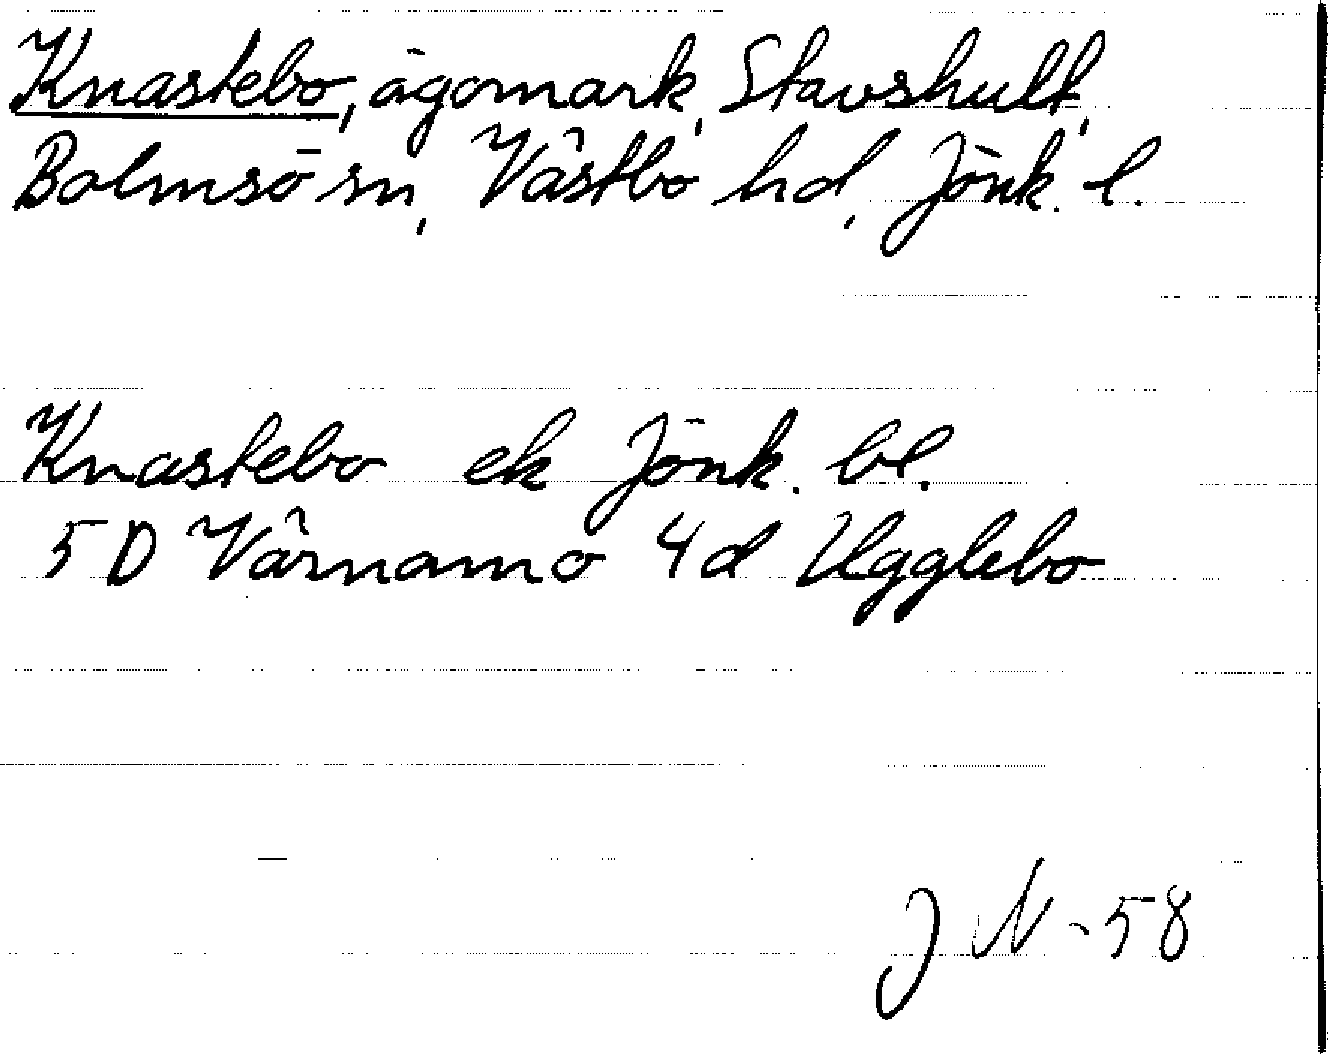 Knastebo, ägomark, Stavshult,
Bolmsö sn, Västbo hd, Jönk. l.
Knastebo ek Jönk. bl.
5D Värnamo 4d Ugglebo
J N -58